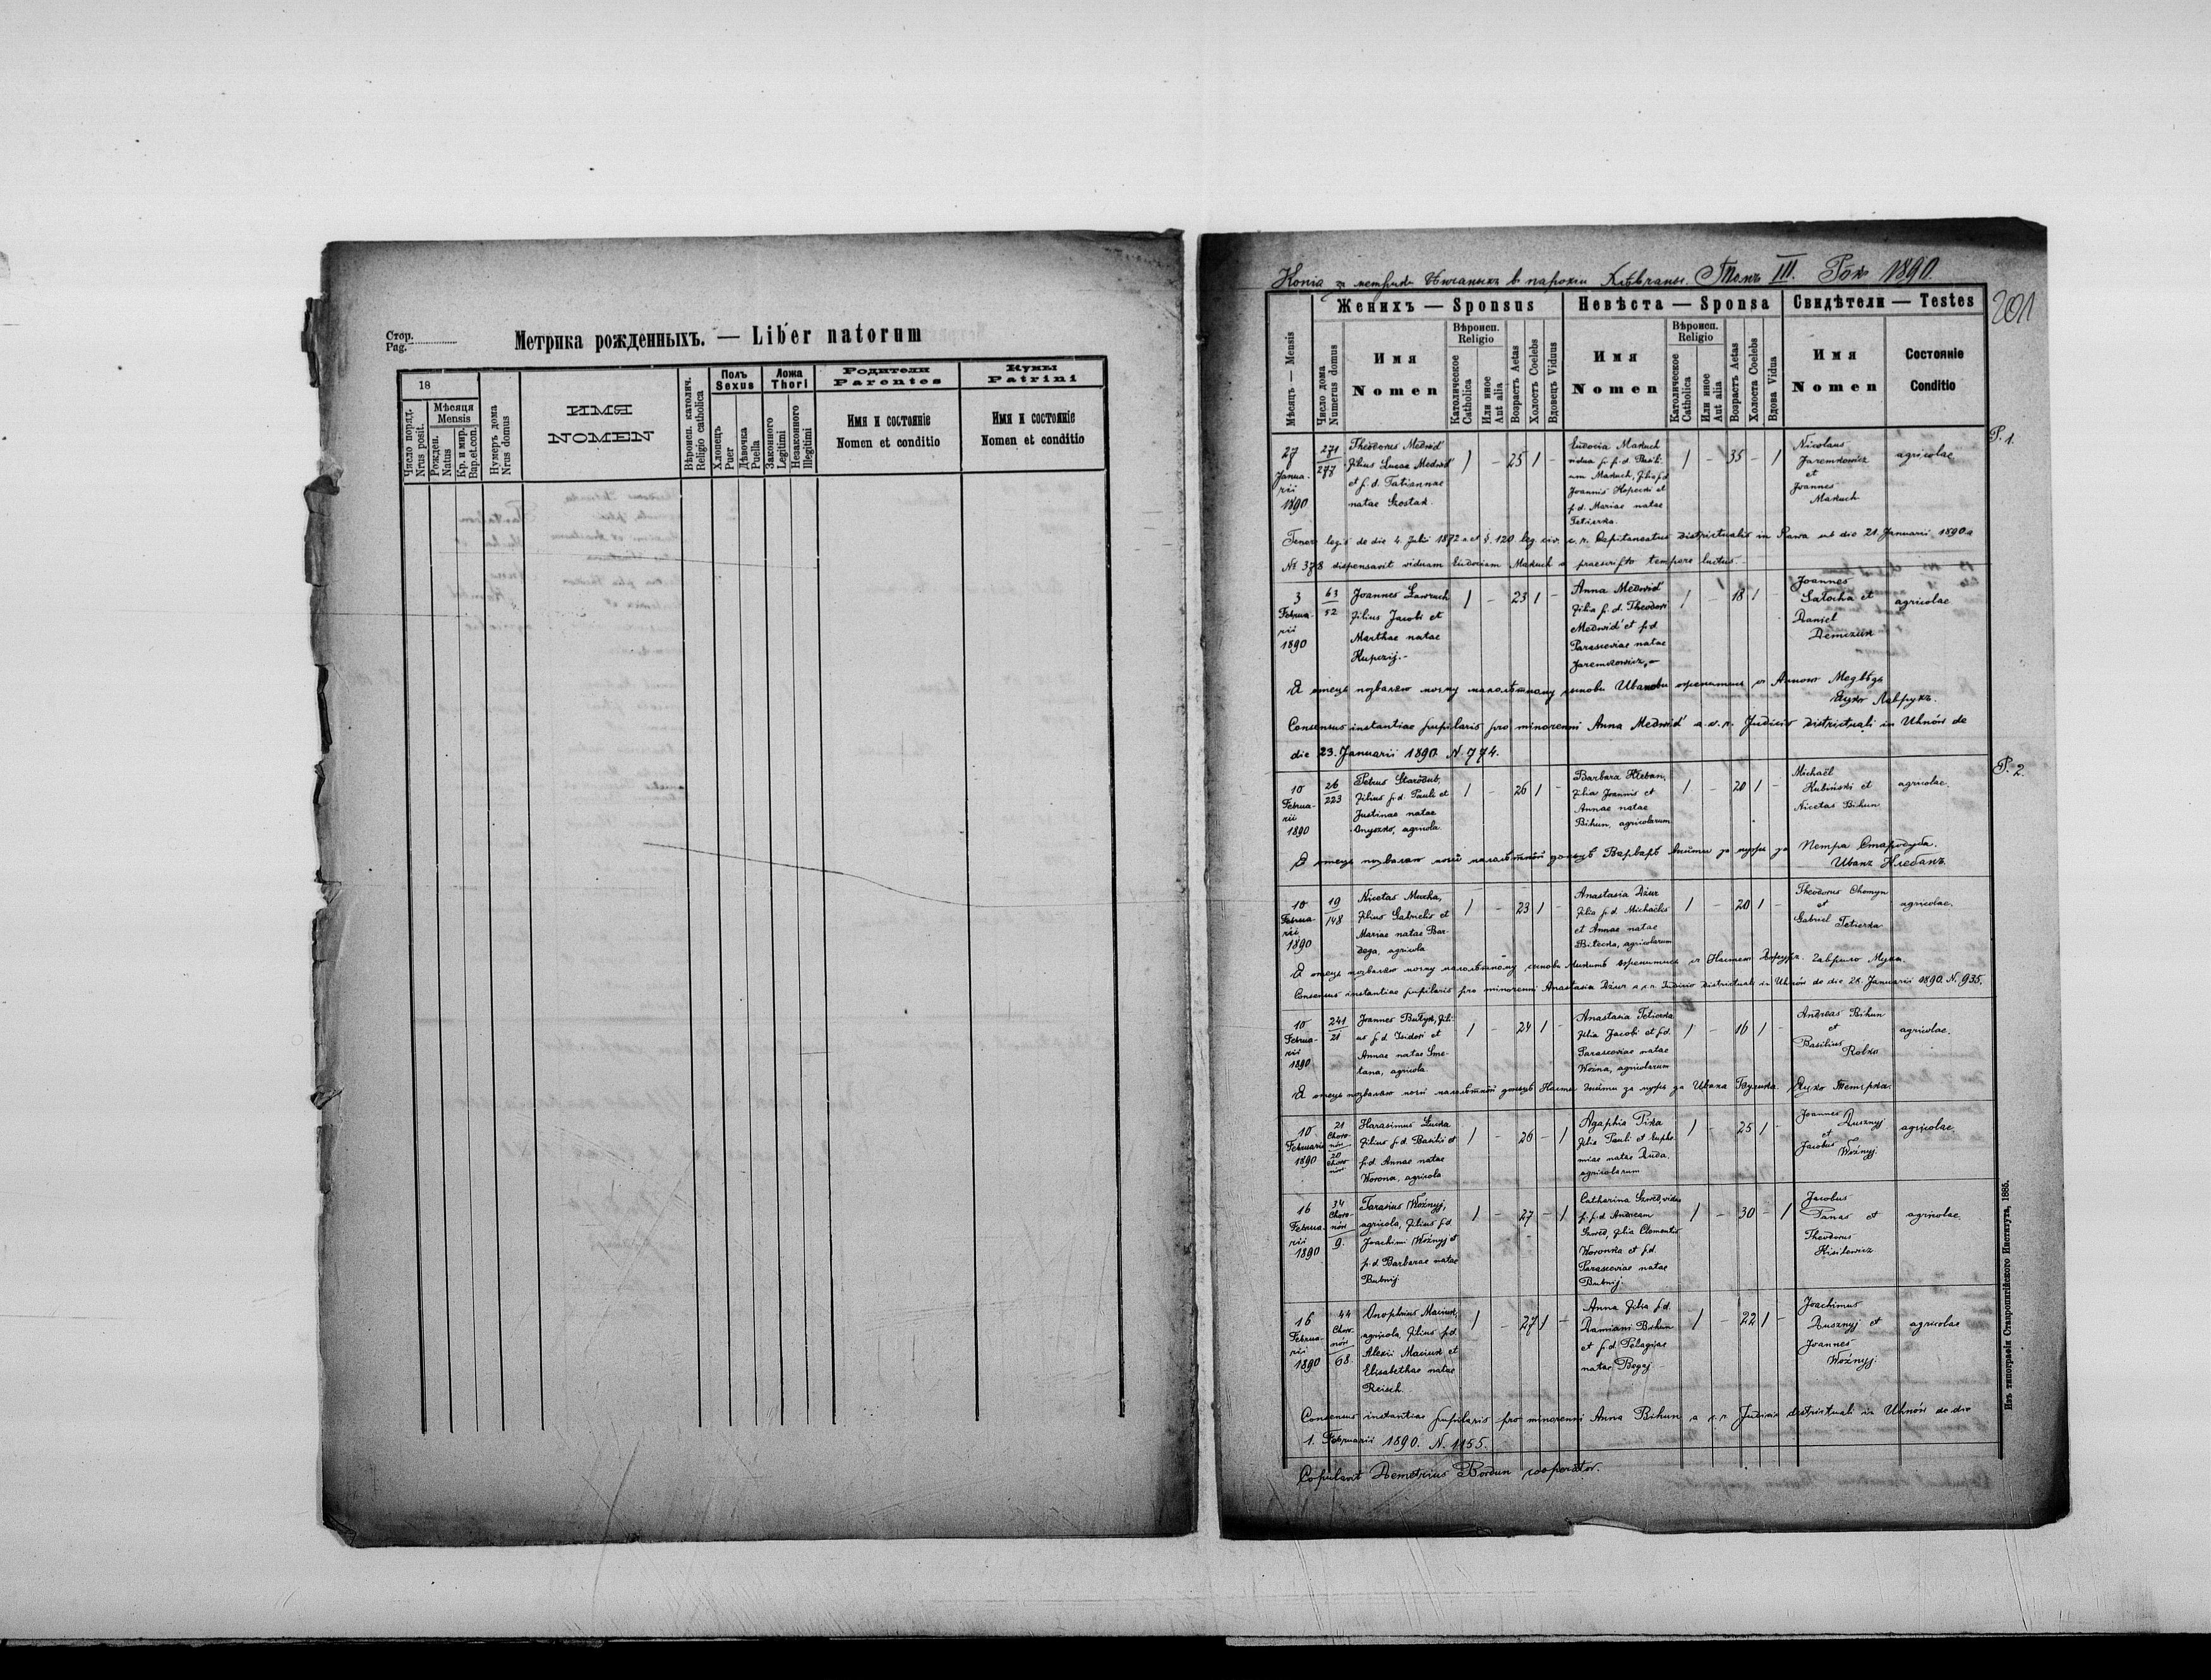 Стор.
Pag.
Метрика рожденныхъ. — Liber natorum
18
Число поряд.
Nrus posit.
Мѣсяця
Mensis
Рожден.
Natus
Кр. и мир.
Bap.et.con.
Нумеръ дома
Nrus domus
ИМЯ
NOMEN
Вѣроисп. католич.
Religio catholica
Полъ
Sexus
Хлопецъ
Puer
Дѣвочка
Puella
Ложа
Thori
Законного
Legitimi
Незаконного
Illegitimi
Родители
Parentes
Имя и состоянiе
Nomen et conditio
Кумы
Patrini
Имя и состоянiе
Nomen et conditio
Томъ III. Рôкъ 1890.
201
Женихъ — Sponsus
Невѣста — Sponsa
Свидѣтели — Testes
Мѣсяцъ — Mensis
Число дома
Numerus domus
Имя
Nomen
Вѣроисп.
Religio
Католическое
Catholica
Или иное
Aut alia
Возрастъ Aetas
Холостъ Coelebs
Вдовецъ Viduus
Имя
Nomen
Вѣроисп.
Religio
Католическое
Catholica
Или иное
Aut alia
Возрастъ Aetas
Холоста Coelebs
Вдова Vidua
Имя
Nomen
Состоянiе
Conditio
P. 1.
27
Janua-
rii
1890
271
277
Theodorus Medwid'
filius Lucae Medwid'
et p. d. Tatiannae
natae Szostak
1 – 25 1 –
Eudocia Makuch
vidua p. p. d. Pauli-
um Makuch, filia p.d.
Joannis Kopecki et
p.d. Mariae natae
Tetierka.
1 – 35 – 1
Nicolaus
Jaremkowicz
et
Joannes
Makuch
agricolae
Tenore legis de die 4. Julii 1872 et §. 120 leg. civ. c. r. Capitaneatus Districtualis in Rawa sub die 21 Januarii 1890
№ 378 dispensavit viduam Eudociam Makuch a praescripto tempore luctus.
3
Februa-
rii
1890
63
52
Joannes Lawruch
filius Jacobi et
Marthae natae
Kupczij.
1 – 23 1 –
Anna Medwid'
filia p. d. Theodori
Medwid' et p.d.
Parasceviae natae
Jaremkowicz.
1 – 18 1 –
Joannes
Salocha et
Daniel
Demczuk
agricolae
Я отець позваляю моему малолѣтному синови Иванови оженитися зъ Анною Медвѣдь
Яцко Лаврухъ.
Consensus instantiae pupilaris pro minorenni Anna Medwid' a c. r. Judicio districtuali in Uhnów de
die 23. Januarii 1890 N. 774.
P. 2.
10
Februa-
rii
1890
26
223
Petrus Starodub,
filius p.d. Pauli et
Justinae natae
Onyszko, agricola.
1 – 26 1 –
Barbara Chleban,
filia Joannis et
Annae natae
Bihun, agricolarum
1 – 20 1 –
Michaël
Kubiński et
Nicetas Bihun
agricolae.
Я отець позваляю моей малолѣтной доньцѣ Варварѣ выйти за мужъ за Петра Стародуба.
Иванъ Хлебанъ.
10
Februa-
rii
1890
19
148
Nicetas Mucha,
filius Gabrielis et
Mariae natae Bar-
dega, agricola
1 – 23 1 –
Anastasia Dżur
filia p.d. Michaëlis
et Annae natae
Bitecka, agricolarum
1 – 20 1 –
Theodorus Chomyn
et
Gabriel Tetierka
agricolae.
Consensus instantiae pupilaris pro minorenni Anastasia Dżur a c.r. Judicio Districtuali in Uhnów de die 28. Januarii 1890. N. 935.
10
Februa-
rii
1890
241
21
Joannes Butyk, fili-
us p.d. Isidori et
Annae natae Sme-
tana, agricola
1 – 24 1 –
Anastasia Tetierka
filia Jacobi et p.d.
Parasceviae natae
Woźna, agricolarum
1 – 16 1 –
Andreas Bihun
et
Basilius
Robko
agricolae.
10
Februarii
1890
21
Choro-
nów
20
Choro-
nów
Harasimus Lucka
filius p.d. Basilii et
p.d. Annae natae
Worona, agricola
1 – 26 – 1
Agaphia Pika
filia Pauli et Euphe-
miae natae Ruda.
agricolarum
1 – 25 1 –
Joannes
Rusznyj
et
Jacobus
Woźnyj.
agricolae.
16
Februa-
rii
1890
34
Choro-
nów
9.
Tarasius Woźnyj,
agricola, filius p.d.
Joachimi Woźnyj et
p.d. Barbarae natae
Bubnij
1 – 27 – 1
Catharina Szwed, vidua
p. p.d. Andream
Szwed, filia Clementis
Woronka et p.d.
Parasceviae natae
Bubnij.
1 – 30 – 1
Jacobus
Panas et
Theodorus
Kisilewicz
agricolae.
16
Februa-
rii
1890
44
Choro-
nów
68.
Onophrius Maciuk,
agricola, filius p.d.
Alexii Maciuk et
Elisabethae natae
Reisch.
1 – 27 1 –
Anna filia p.d.
Damiani Bihun
et p.d. Pelagiae
natae Begej
1 – 22 1 –
Joachimus
Rusznyj et
Joannes
Woźnyj.
agricolae
Consensus instantiae pupilaris pro minorenni Anna Bihun a c.r. Judicio districtuali in Uhnów de die
1. Februarii 1890. N. 1155.
Copulavit Demetrius Bordun cooperator.
Изъ типографiи Ставропигiйского Института, 1885.